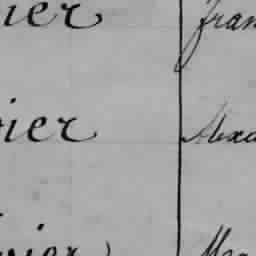 ier fran
ier Alexa
vier Mar